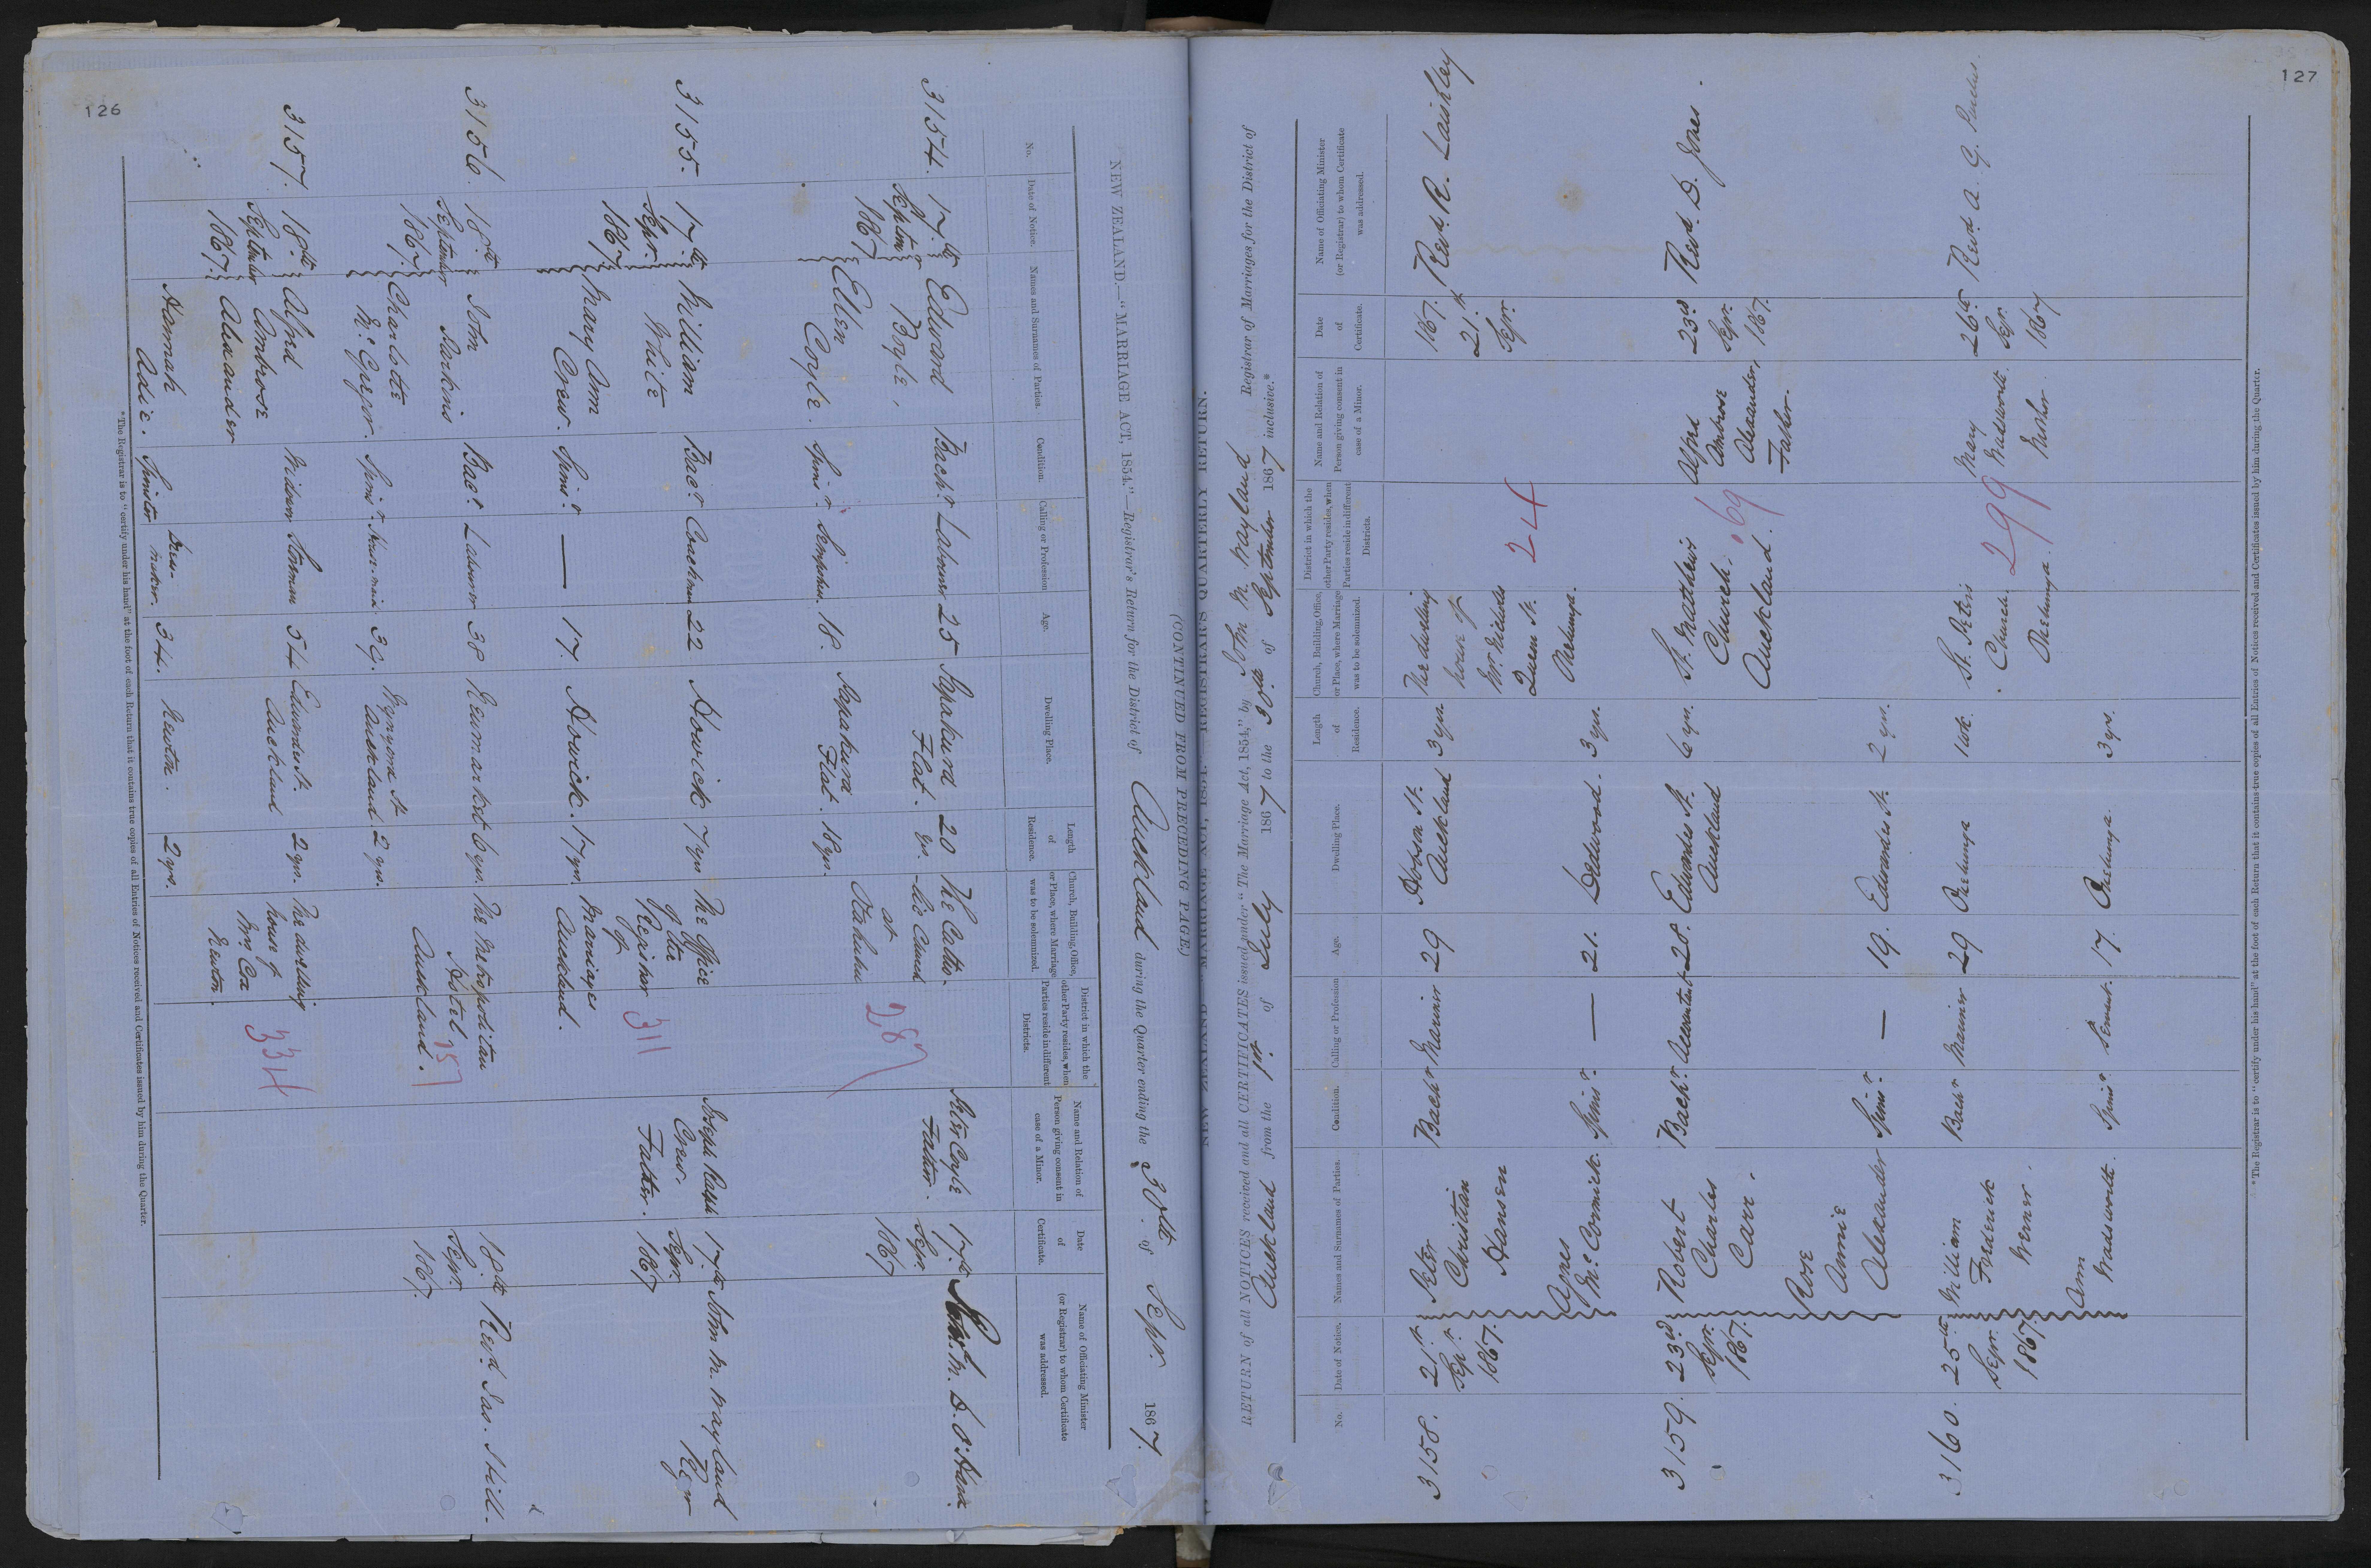 126
NEW ZEALAND.—"MARRIAGE ACT, 1854."—Registrar's Return for the District of Auckland during the Quarter ending the 30th of Sepr. 1867.
No.
Date of Notice.
Names and Surnames of Parties.
Condition.
Calling or Profession
Age.
Dwelling Place.
Length of Residence.
Church, Building, Office, or Place, where Marriage was to be solemnized.
District in which the other Party resides, when Parties reside in different Districts.
Name and Relation of Person giving consent in case of a Minor.
Date of Certificate.
Name of Officiating Minister (or Registrar) to whom Certificate was addressed.
3154. 17th Edward Bachr. Labourer 25 Papakura 20 The Catho- Peter Coyle 17th
Septemr Boyle, Flat. yrs. -lic Church Father. Sepr.
1867 at 1867
Ellen Spinr. 18. Papakura 18 yrs. Otahuhu
Coyle. Flat.
287
3155. 17th William Bacr. Coachman 22 Howick 7 yrs The Office Joseph Ralph 17th John M. Wayland
Sepr. White of the Crew. Sepr. Regr
1867. Registrar Father. 1867
of
Mary Ann Spinr. — 17. Howick. 17 yrs. Marriages
Crew. Auckland.
311
3156. 18th John Bacr. Labourer 38 Newmarket 6 yrs. The Metropolitan 18th Revd. Jas. Hill.
September Parkins Hotel Sepr.
1867. Auckland. 1867.
Charlotte Spinr. House-maid 39. Wynyard St 2 yrs.
McGregor. Auckland
157
3157. 18th Alfred Widower Storeman 54 Edwardes St. 2 yrs. The dwelling
September Ambrose Auckland house of
1867. Alexander Mrs. Cox
Newton.
Hannah Spinster Dress- 34. Newton. 2 yrs.
Adie. maker.
334
*The Registrar is to "certify under his hand" at the foot of each Return that it contains true copies of all Entries of Notices received and Certificates issued by him during the Quarter.
127
NEW ZEALAND.—"MARRIAGE ACT, 1854."—REGISTRAR'S QUARTERLY RETURN.
(CONTINUED FROM PRECEDING PAGE.)
RETURN of all NOTICES received and all CERTIFICATES issued under "The Marriage Act, 1854," by John M. Wayland Registrar of Marriages for the District of
Auckland from the 1st. of July 1867 to the 30th. of September 1867 inclusive.*
No.
Date of Notice.
Names and Surnames of Parties.
Condition.
Calling or Profession
Age.
Dwelling Place.
Length of Residence.
Church, Building, Office, or Place, where Marriage was to be solemnized.
District in which the other Party resides, when Parties reside in different Districts.
Name and Relation of Person giving consent in case of a Minor.
Date of Certificate.
Name of Officiating Minister (or Registrar) to whom Certificate was addressed.
3158. 21st. Peter Bachr Mariner 29 Hobson St. 3 yrs. The dwelling 1867. Revd. R. Laishley
Sepr. Christian Auckland house of 21st.
1867. Hansen Mr. Nicholls Sepr.
Queen St.
Agnes Spinr. — 21. Dedwood. 3 yrs. Onehunga.
McCormick.
24
3159. 23rd Robert Bachr. Accountant 28. Edwardes St. 6 yrs. St. Matthew's Alfred 23rd Revd. D. Jones.
Sepr. Charles Auckland Church. Ambrose Sepr.
1867. Carr. Auckland. Alexander, 1867.
Father.
Rose Spinr. — 19. Edwardes St. 2 yrs.
Annie
Alexander
69
3160. 25th William Bachr Mariner 29 Onehunga 1 wk. St. Peters Mary 26th Revd. A. G. Purchas.
Sepr. Frederick Church. Wadsworth. Sepr.
1867. Werner. Onehunga. Mother 1867
Ann Spinr. Servant. 17. Onehunga. 3 yrs.
Wadsworth.
299
*The Registrar is to "certify under his hand" at the foot of each Return that it contains true copies of all Entries of Notices received and Certificates issued by him during the Quarter.